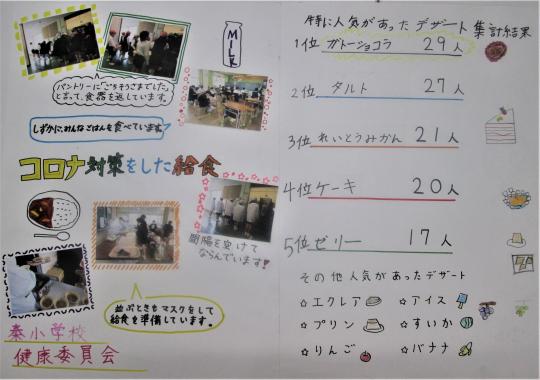 MILK
パントリーに「ごちそうさまでした」
と言って、食器を返しています。
しずかに、みんなごはんを食べています
コロナ対策をした給食
間隔を空けて
ならんでいます!
並ぶときもマスクをして
給食を準備しています。
秦小学校
健康委員会
特に人気があったデザート 集計結果
1位 ガトーショコラ 29人
2位 タルト 27人
3位 れいとうみかん 21人
4位 ケーキ 20人
5位 ゼリー 17人
その他人気があったデザート
☆エクレア ☆アイス
☆プリン ☆すいか
☆りんご ☆バナナ